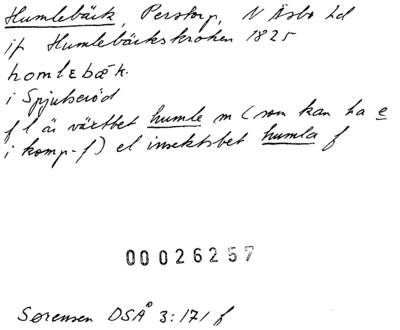 Humlebäck, Perstorp, N Åsbo hd
jf Humlebäckskroken 1825
homlebæk.
i Spjutseröd
f l är växtbet humle m (som kan ha e
i komp-f) el insektsbet humla f
00026257
Sørensen DSÅ 3:171 f